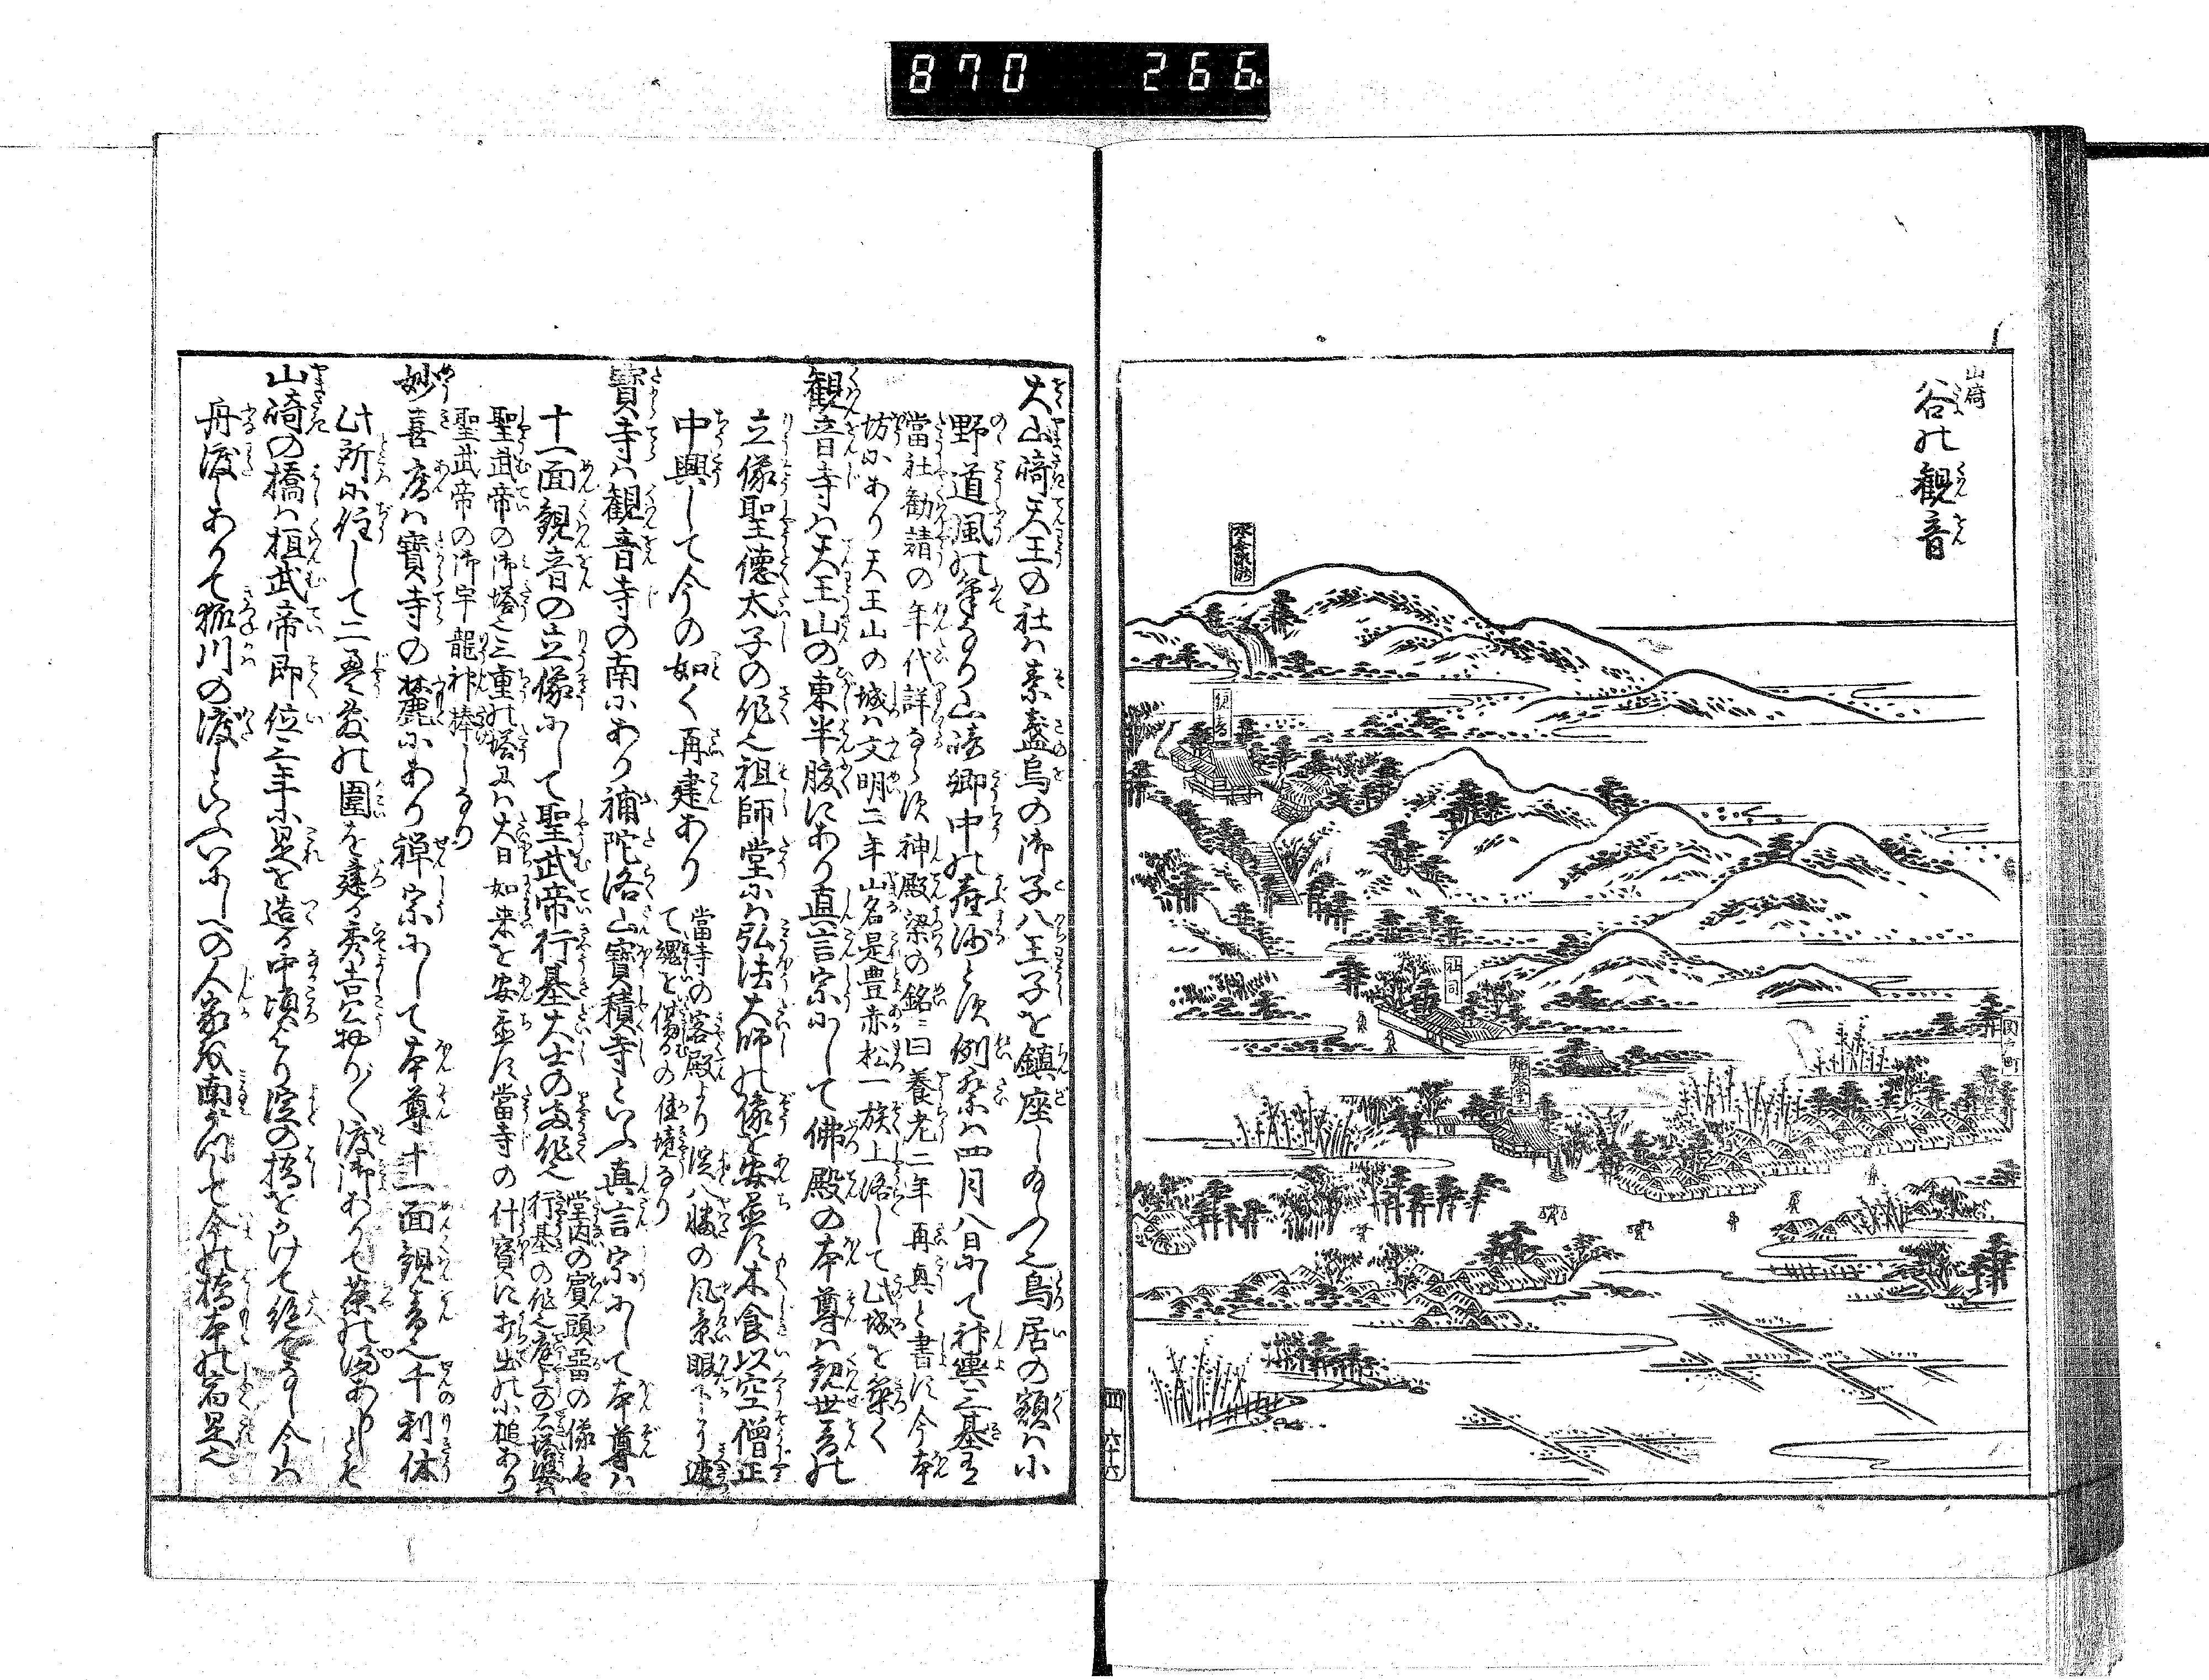 870 266
山崎
谷の観音
観音
社司
関戸町
四 六十六
大山崎天王の社は素盞烏の御子八王子を鎮座し給ふ也鳥居の額は小
野道風の筆なり山崎郷中の産沙とす例祭は四月八日にして神輿三基有
當社勧請の年代詳ならず神殿梁の銘ニ曰養老二年再真と書す今本
坊にあり天王山の城は文明二年山名是豊赤松一族上洛して此城を築く
観音寺は天王山の東半腹にあり真言宗にして佛殿の本尊は観世音の
立像聖徳太子の作也祖師堂には弘法大師の像を安置す木食以空僧正
中興して今の如く再建あり
當寺の客殿より淀八幡の風景眼下にあり遮
て魂を傷るの佳境なり
寳寺は観音寺の南にあり補陀洛山寳積寺といふ真言宗にして本尊は
十一面観音の立像にして聖武帝行基大士の両作也
堂内の賓頭盧の像は
行基の作也庭上の石塔婆は
聖武帝の御塔也三重の塔には大日如来を安置す當寺の什寳に打出の小槌あり
聖武帝の御宇龍神捧しなり
妙喜庵は寳寺の麓にあり禅宗にして本尊十一面観音也千利休
此所に住して二畳敷の圍を建る秀吉公物りく渡御ありて茶の湯ありしとぞ
山崎の橋は桓武帝即位三年に是を造る中頃より淀の橋をかけて絶たり今は
舟渡しありて狐川の渡しといふいにしへの人家は南につゞきて今の橋本の宿是也